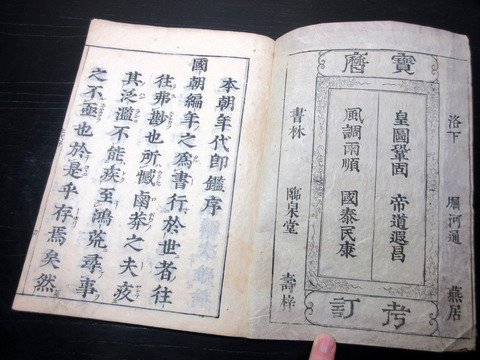 洛下 堀河通 燕居
寶曆
皇圖鞏固 帝道遐昌
風調雨順 國泰民康
考訂
書林 臨泉堂 壽梓
本朝年代即鑑序
國朝編年之爲書行於世者往
往弗尠也所憾鹵莽之夫疚
其泛濫不能疾至鴻荒尋事
之不亟也於是乎存焉矣然